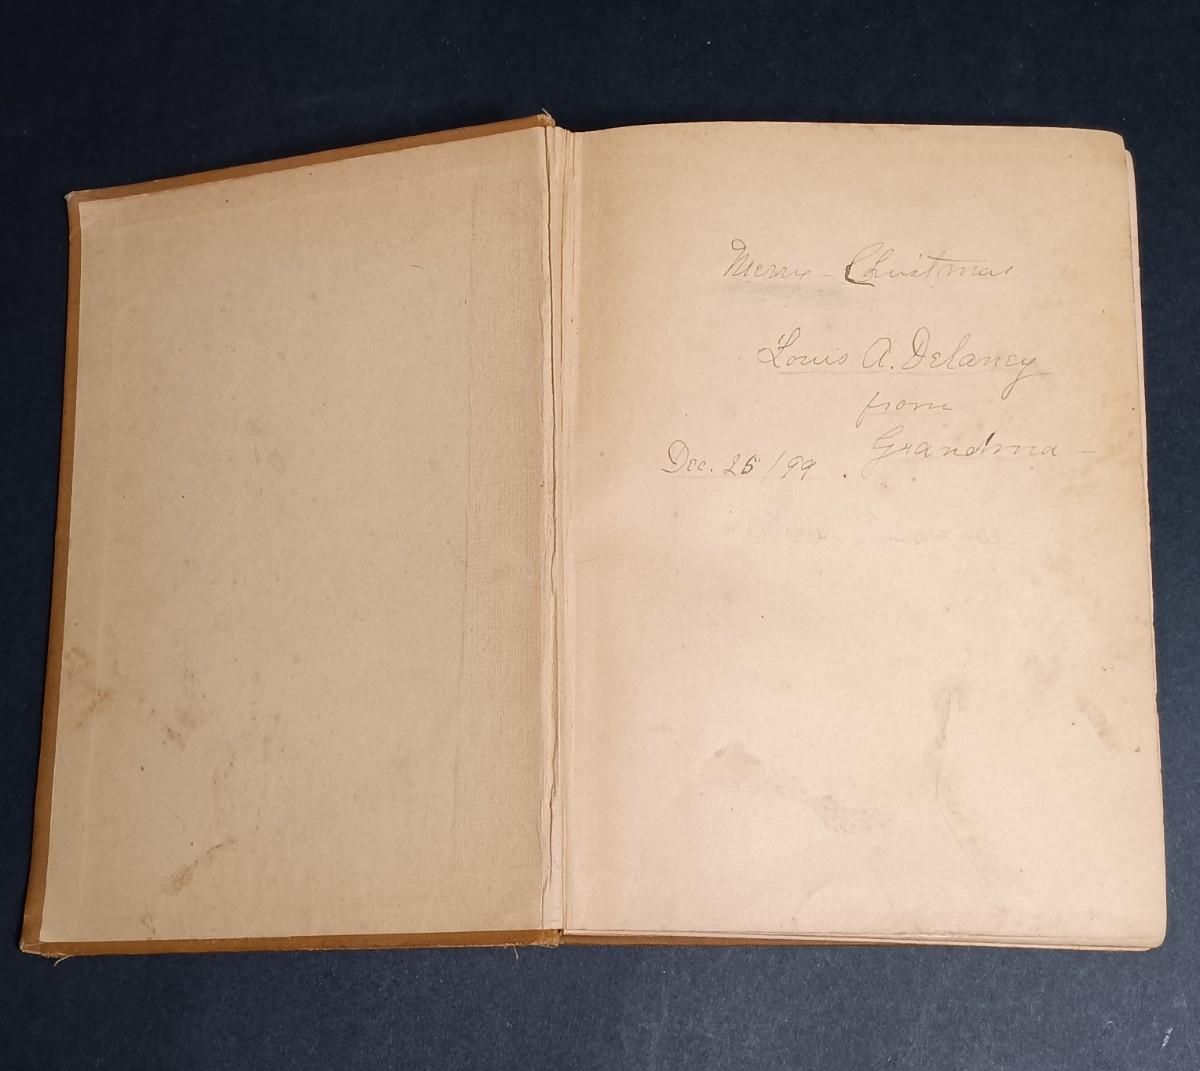 Merry - Christmas
Louis A. Delaney
from
Grandma -
Dec. 25/99.